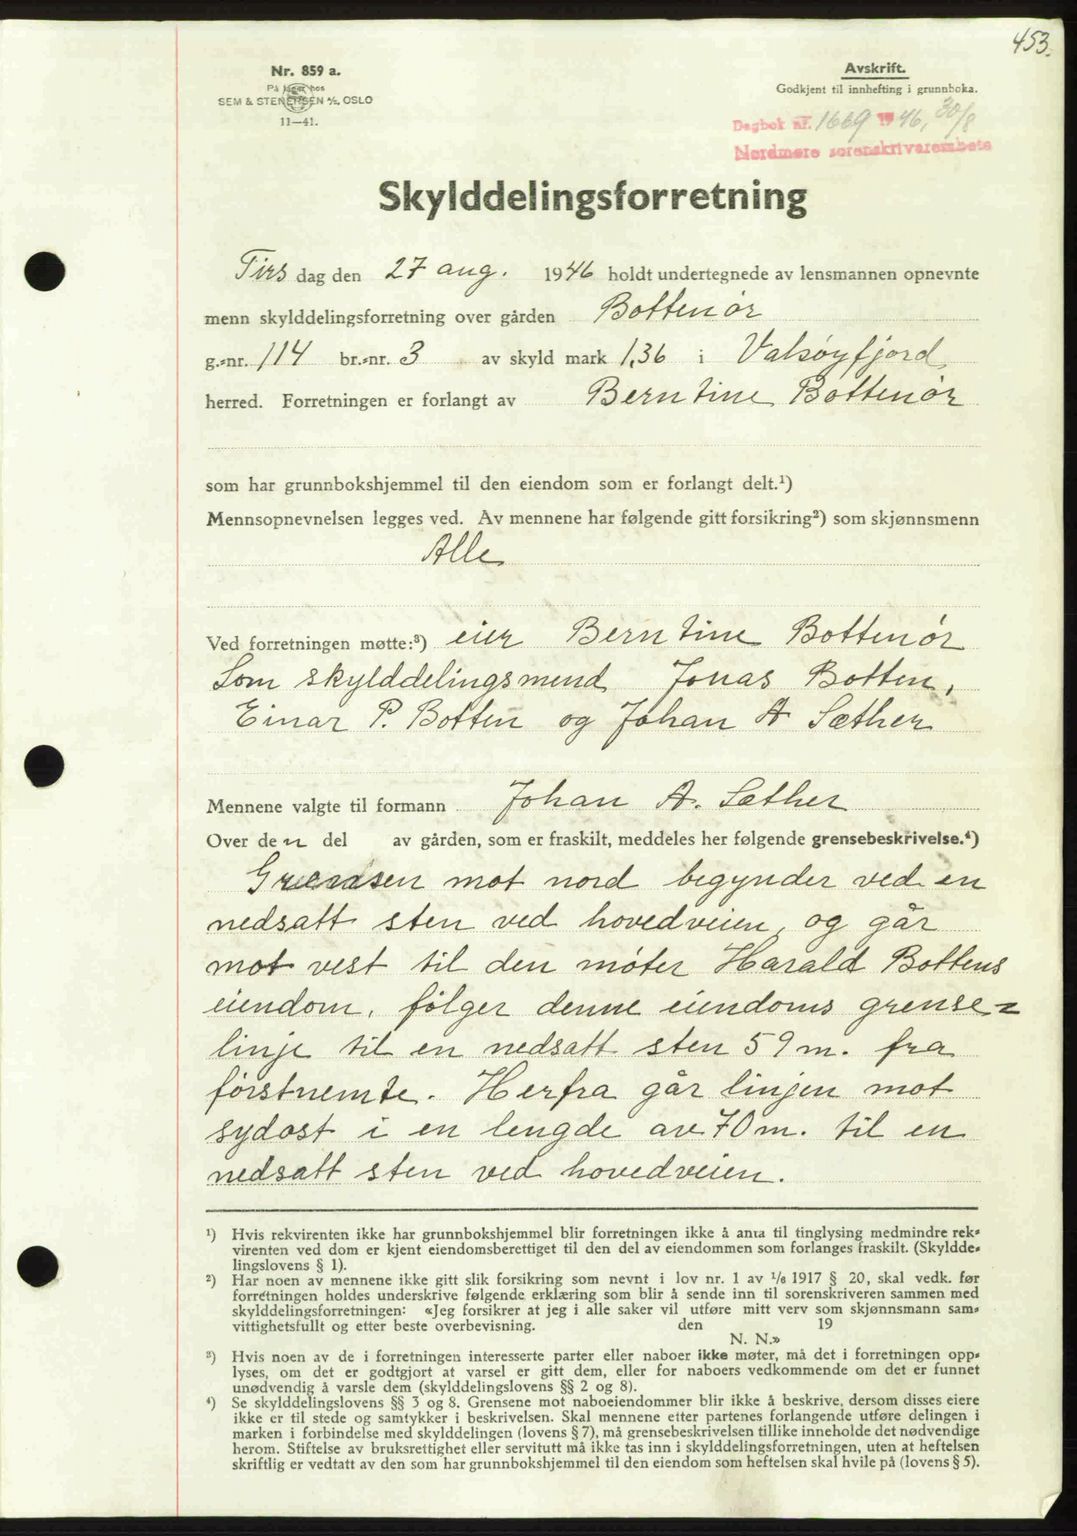 453.
Nr. 859 a.
På lager hos
SEM & STENERSEN A/S, OSLO
11—41.
Avskrift.
Godkjent til innhefting i grunnboka.
Dagbok nr. 1669 1946, 30/8
Nordmøre sorenskriverembete
Skylddelingsforretning
Tirsdag den 27 aug. 1946 holdt undertegnede av lensmannen opnevnte
menn skylddelingsforretning over gården Bottenör
g.-nr. 114 br.-nr. 3 av skyld mark 1,36 i Valsøyfjord
herred. Forretningen er forlangt av Berntine Bottenör
som har grunnbokshjemmel til den eiendom som er forlangt delt.¹)
Mennsopnevnelsen legges ved. Av mennene har følgende gitt forsikring²) som skjønnsmenn
Alle
Ved forretningen møtte:³) eier Berntine Bottenör
Som skylddelingsmend Jonas Botten,
Einar P. Botten og Johan A Sæther
Mennene valgte til formann Johan A. Sæther
Over den del av gården, som er fraskilt, meddeles her følgende grensebeskrivelse.⁴)
Grensen mot nord begynder ved en
nedsatt sten ved hovedveien, og går
mot vest til den møter Harald Bottens
eiendom, følger denne eiendoms grense-
linje til en nedsatt sten 59 m. fra
førstnemte. Herfra går linjen mot
sydøst i en lengde av 70 m. til en
nedsatt sten ved hovedveien.
¹) Hvis rekvirenten ikke har grunnbokshjemmel blir forretningen ikke å anta til tinglysing medmindre rek-
virenten ved dom er kjent eiendomsberettiget til den del av eiendommen som forlanges fraskilt. (Skyldde-
lingslovens § 1).
²) Har noen av mennene ikke gitt slik forsikring som nevnt i lov nr. 1 av 1/6 1917 § 20, skal vedk. før
forretningen holdes underskrive følgende erklæring som blir å sende inn til sorenskriveren sammen med
skylddelingsforretningen: «Jeg forsikrer at jeg i alle saker vil utføre mitt verv som skjønnsmann sam-
vittighetsfullt og etter beste overbevisning. den 19
N. N.»
³) Hvis noen av de i forretningen interesserte parter eller naboer ikke møter, må det i forretningen opp-
lyses, om det er godtgjort at varsel er gitt dem, eller for naboers vedkommende om det er funnet
unødvendig å varsle dem (skylddelingslovens §§ 2 og 8).
⁴) Se skylddelingslovens §§ 3 og 8. Grensene mot naboeiendommer blir ikke å beskrive, dersom disses eiere
ikke er til stede og samtykker i beskrivelsen. Skal mennene etter partenes forlangende utføre delingen i
marken i forbindelse med skylddelingen (lovens § 7), må grensebeskrivelsen tillike inneholde det nødvendige
herom. Stiftelse av bruksrettighet eller servitutt må ikke tas inn i skylddelingsforretningen, uten at heftelsen
skriftlig er vedtatt av den som har grunnbokshjemmel til den eiendom som heftelsen skal hvile på (lovens § 5).